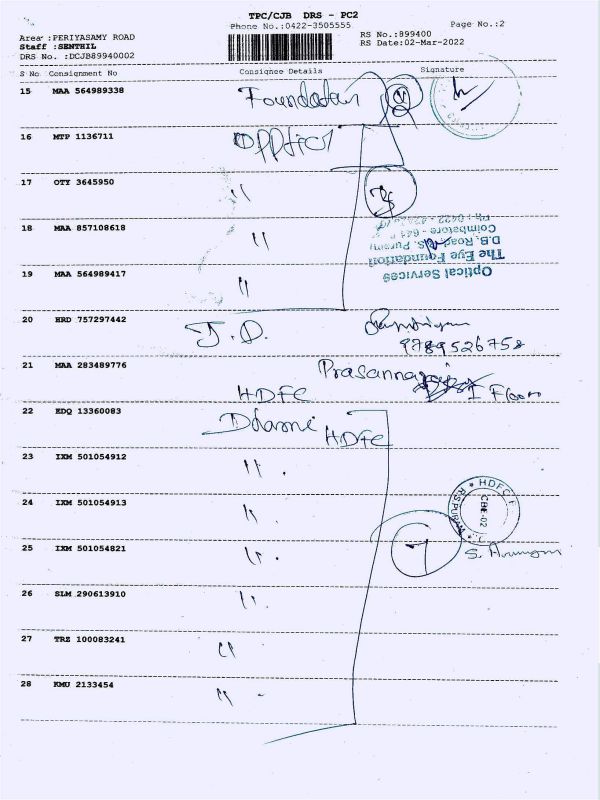 TPC/CJB DRS - PC2
Phone No.:0422-3505555
Page No.:2
Area :PERIYASAMY ROAD
RS No.:899400
Staff :SENTHIL
RS Date:02-Mar-2022
DRS No. :DCJB89940002
S No Consignment No Consignee Details Signature
15 MAA 564989338 Foundation
16 MTP 1136711 Opptical
17 OTY 3645950 "
18 MAA 857108618 "
19 MAA 564989417 "
Optical Services
The Eye Foundation
D.B. Road, R.S. Puram
Coimbatore - 641
Ph : 0422 -
20 HRD 757297442 J.D.
9789526758
21 MAA 283489776 HDFC Prasanna I Floor
22 EDQ 13360083 HDFC
23 IXM 501054912 "
24 IXM 501054913 "
25 IXM 501054821 "
HDFC
CBE-02
R.S.PURAM
26 SLM 290613910 "
27 TRZ 100083241 "
28 KMU 2133454 "